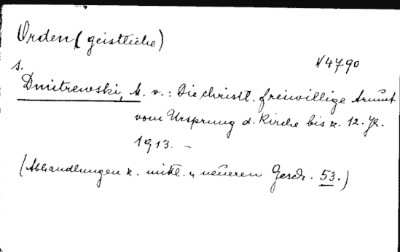 Orden (geistliche)
N4790
s.
Dmitrewski, M. v.: Die christl. freiwillige Armut
vom Ursprung d. Kirche bis z. 12. Jh.
1913. -
(Abhandlungen z. mittl. u. neueren Gesch. 53.)